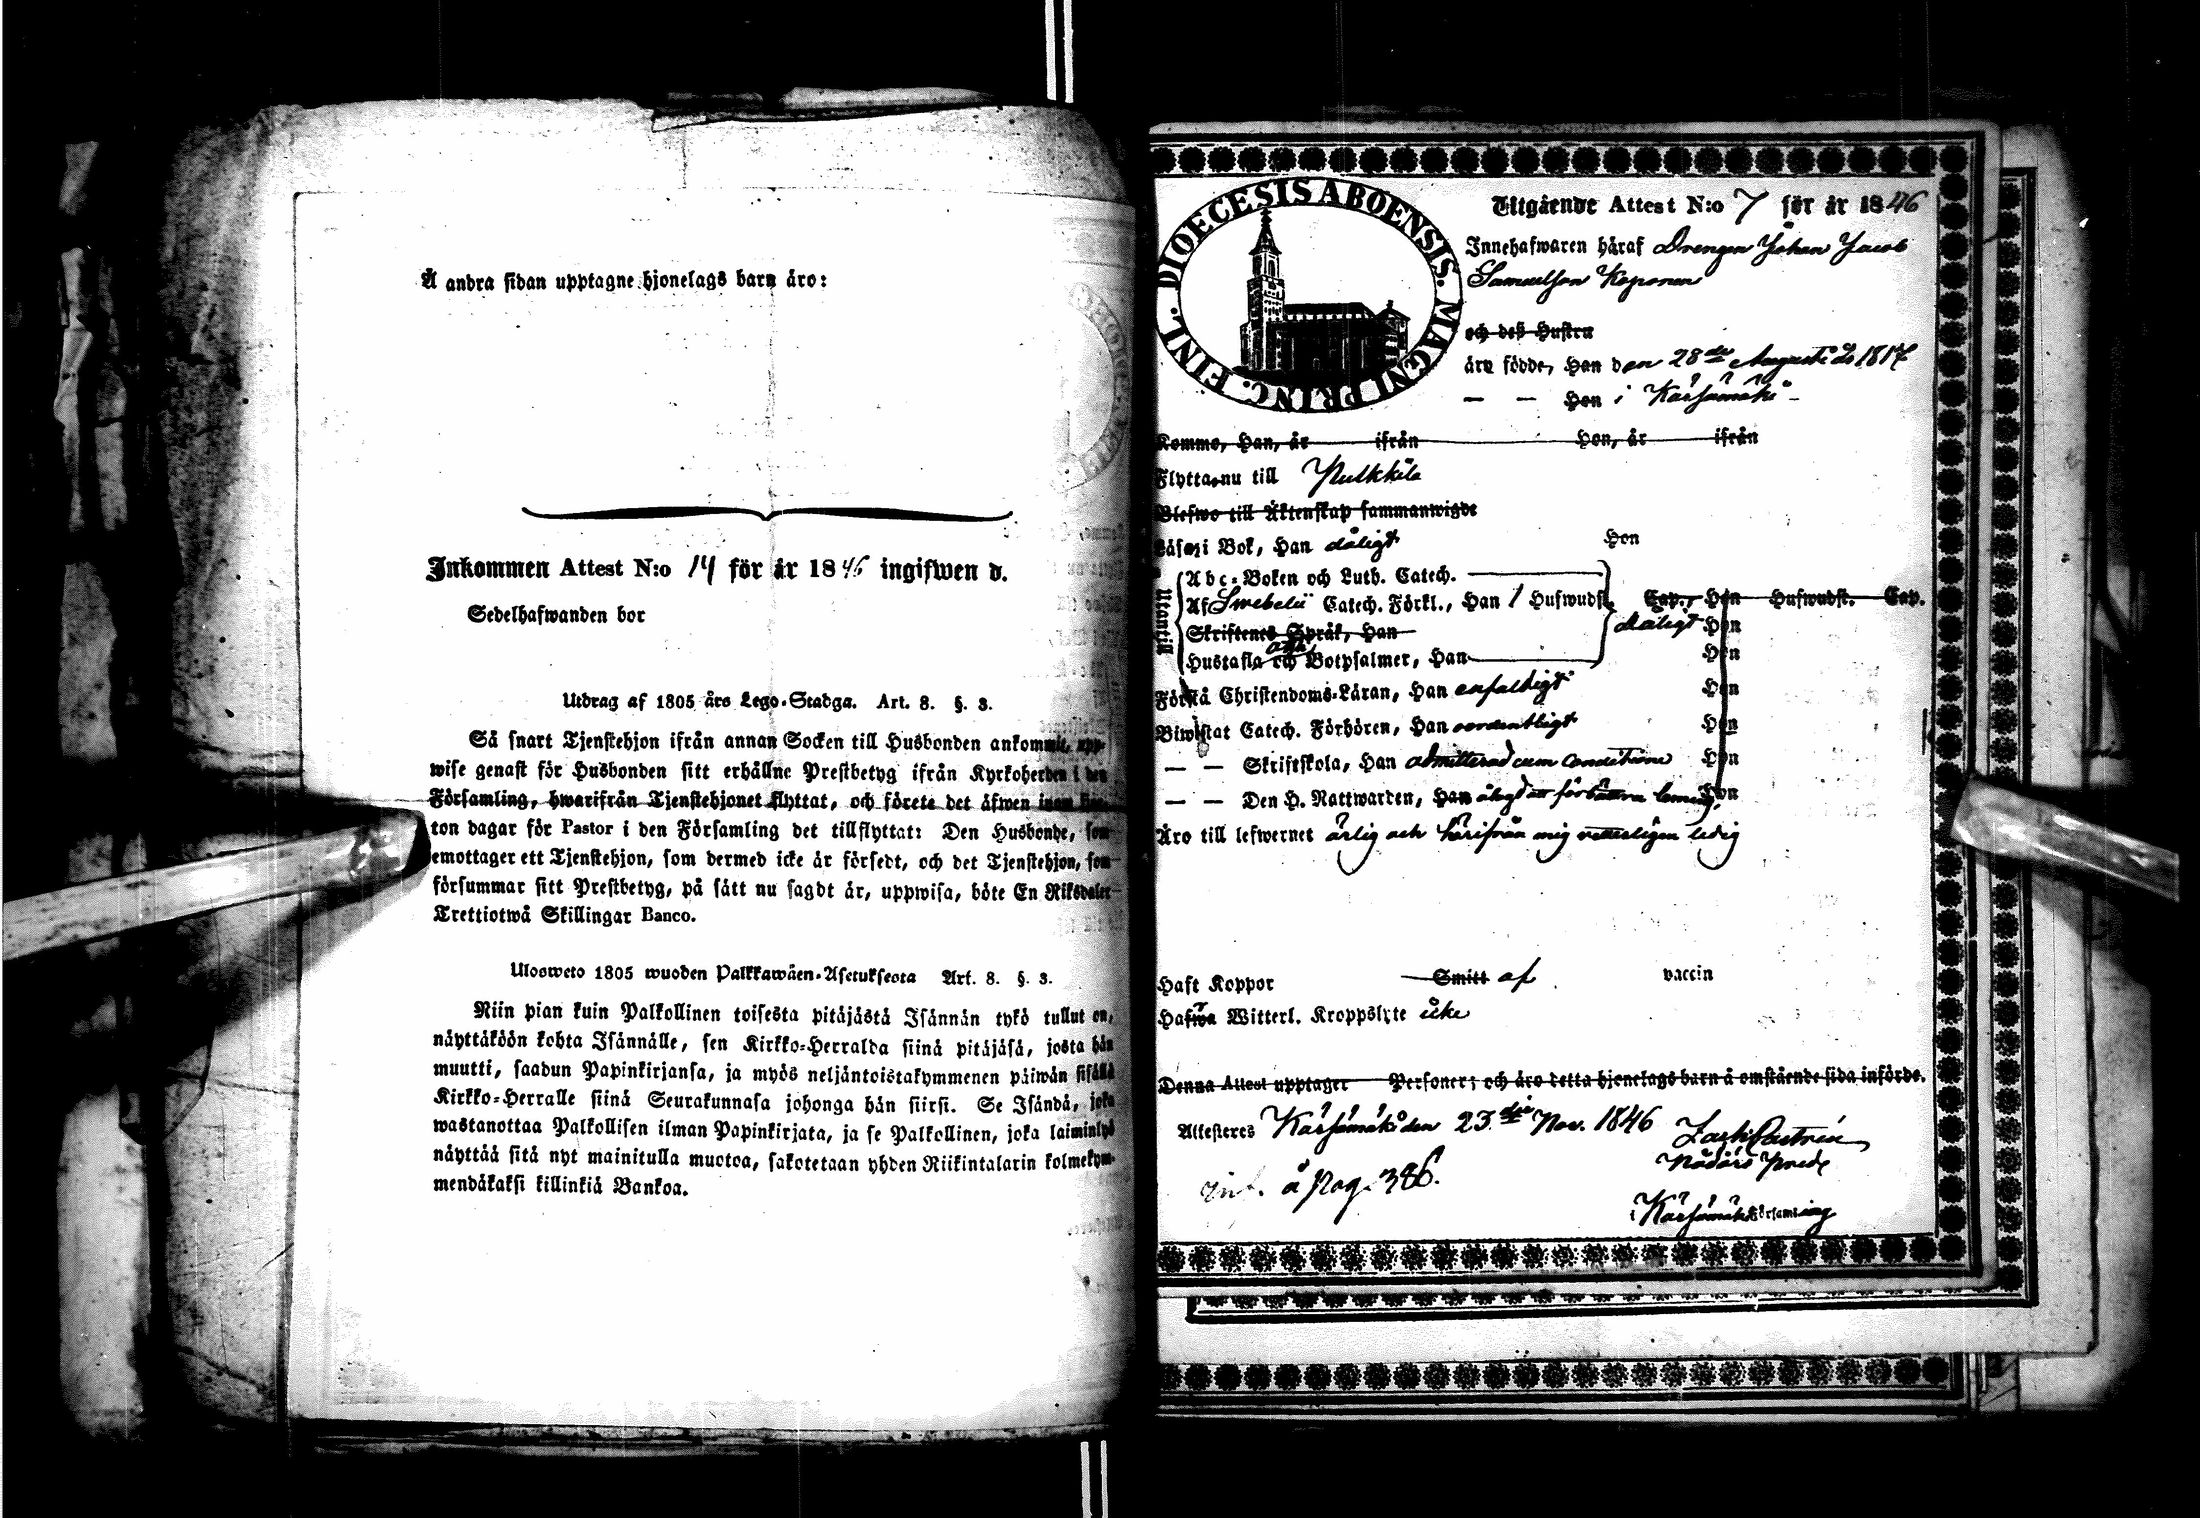 Å andra sidan upptagne hjonelags barn äro:
Inkommen Attest N:o 14 för år 1846 ingifwen d.
Sedelhafwanden bor
Utdrag af 1805 års Lego-Stadga. Art. 8. §. 3.
Så snart Tjenstehjon ifrån annan Socken till Husbonden ankommit, upp-
wise genast för Husbonden sitt erhållne Prestbetyg ifrån Kyrkoherden i den
Församling, hwarifrån Tjenstehjonet flyttat, och förete det äfwen inom fjor-
ton dagar för Pastor i den Församling det tillflyttat: Den Husbonde, som
emottager ett Tjenstehjon, som dermed icke är försedt, och det Tjenstehjon, som
försummar sitt Prestbetyg, på sätt nu sagdt är, uppwisa, böte En Riksdaler
Trettiotwå Skillingar Banco.
Ulosweto 1805 wuoden Palkkawäen-Asetuksesta Art. 8. §. 3.
Niin pian kuin Palkollinen toisesta pitäjästä Isännän tykö tullut on,
näyttäköön kohta Isännälle, sen Kirkko-Herralda siinä pitäjäsä, josta hän
muutti, saadun Papinkirjansa, ja myös neljäntoistakymmenen päiwän sisällä
Kirkko-Herralle siinä Seurakunnasa johonga hän siirsi. Se Isändä, joka
wastanottaa Palkollisen ilman Papinkirjata, ja se Palkollinen, joka laiminlyö
näyttää sitä nyt mainitulla muotoa, sakotetaan yhden Riikintalarin kolmekym-
mendäkaksi killinkiä Bankoa.
DIOECESIS ABOENSIS. MAGNI PRINC. FINL.
Utgående Attest N:o 7 för år 1846
Innehafwaren häraf Drengen Johan Jacob
Samuelson Koponen
och deß Hustru
äro födde, Han den 28de Augusti 1817
— — Hon i Kärsämäki
Kommo, Han, år ifrån Hon, år ifrån
Flytta nu till Pulkkila
Blefwo till Äktenskap sammanwigde
Läser i Bok, Han dåligt Hon
Utantill
Abc-Boken och Luth. Catech.
Af Swebelii Catech. Förkl., Han 1 Hufwudst. Cap., Hon Hufwudst. Cap.
Skriftenes Språk, Han dåligt Hon
Hustafla och Botpsalmer, Han Hon
Förstå Christendoms-Läran, Han enfaldigt Hon
Biwistat Catech. Förhören, Han ordentligt Hon
— — Skriftskola, Han admitterad cum conditione Hon
— — Den H. Nattwarden, Han förbättra Hon
Äro till lefwernet ärlig och härifrån mig ledig
Haft Koppor Smitt af vaccin
Hafwa Witterl. Kroppslyte icke
Denna Attest upptager Personer; och äro detta hjonelags barn å omstående sida införde.
Attesteras Kärsämäki den 23die Nov. 1846
å Pag. 386.
i Kärsämäki Församling